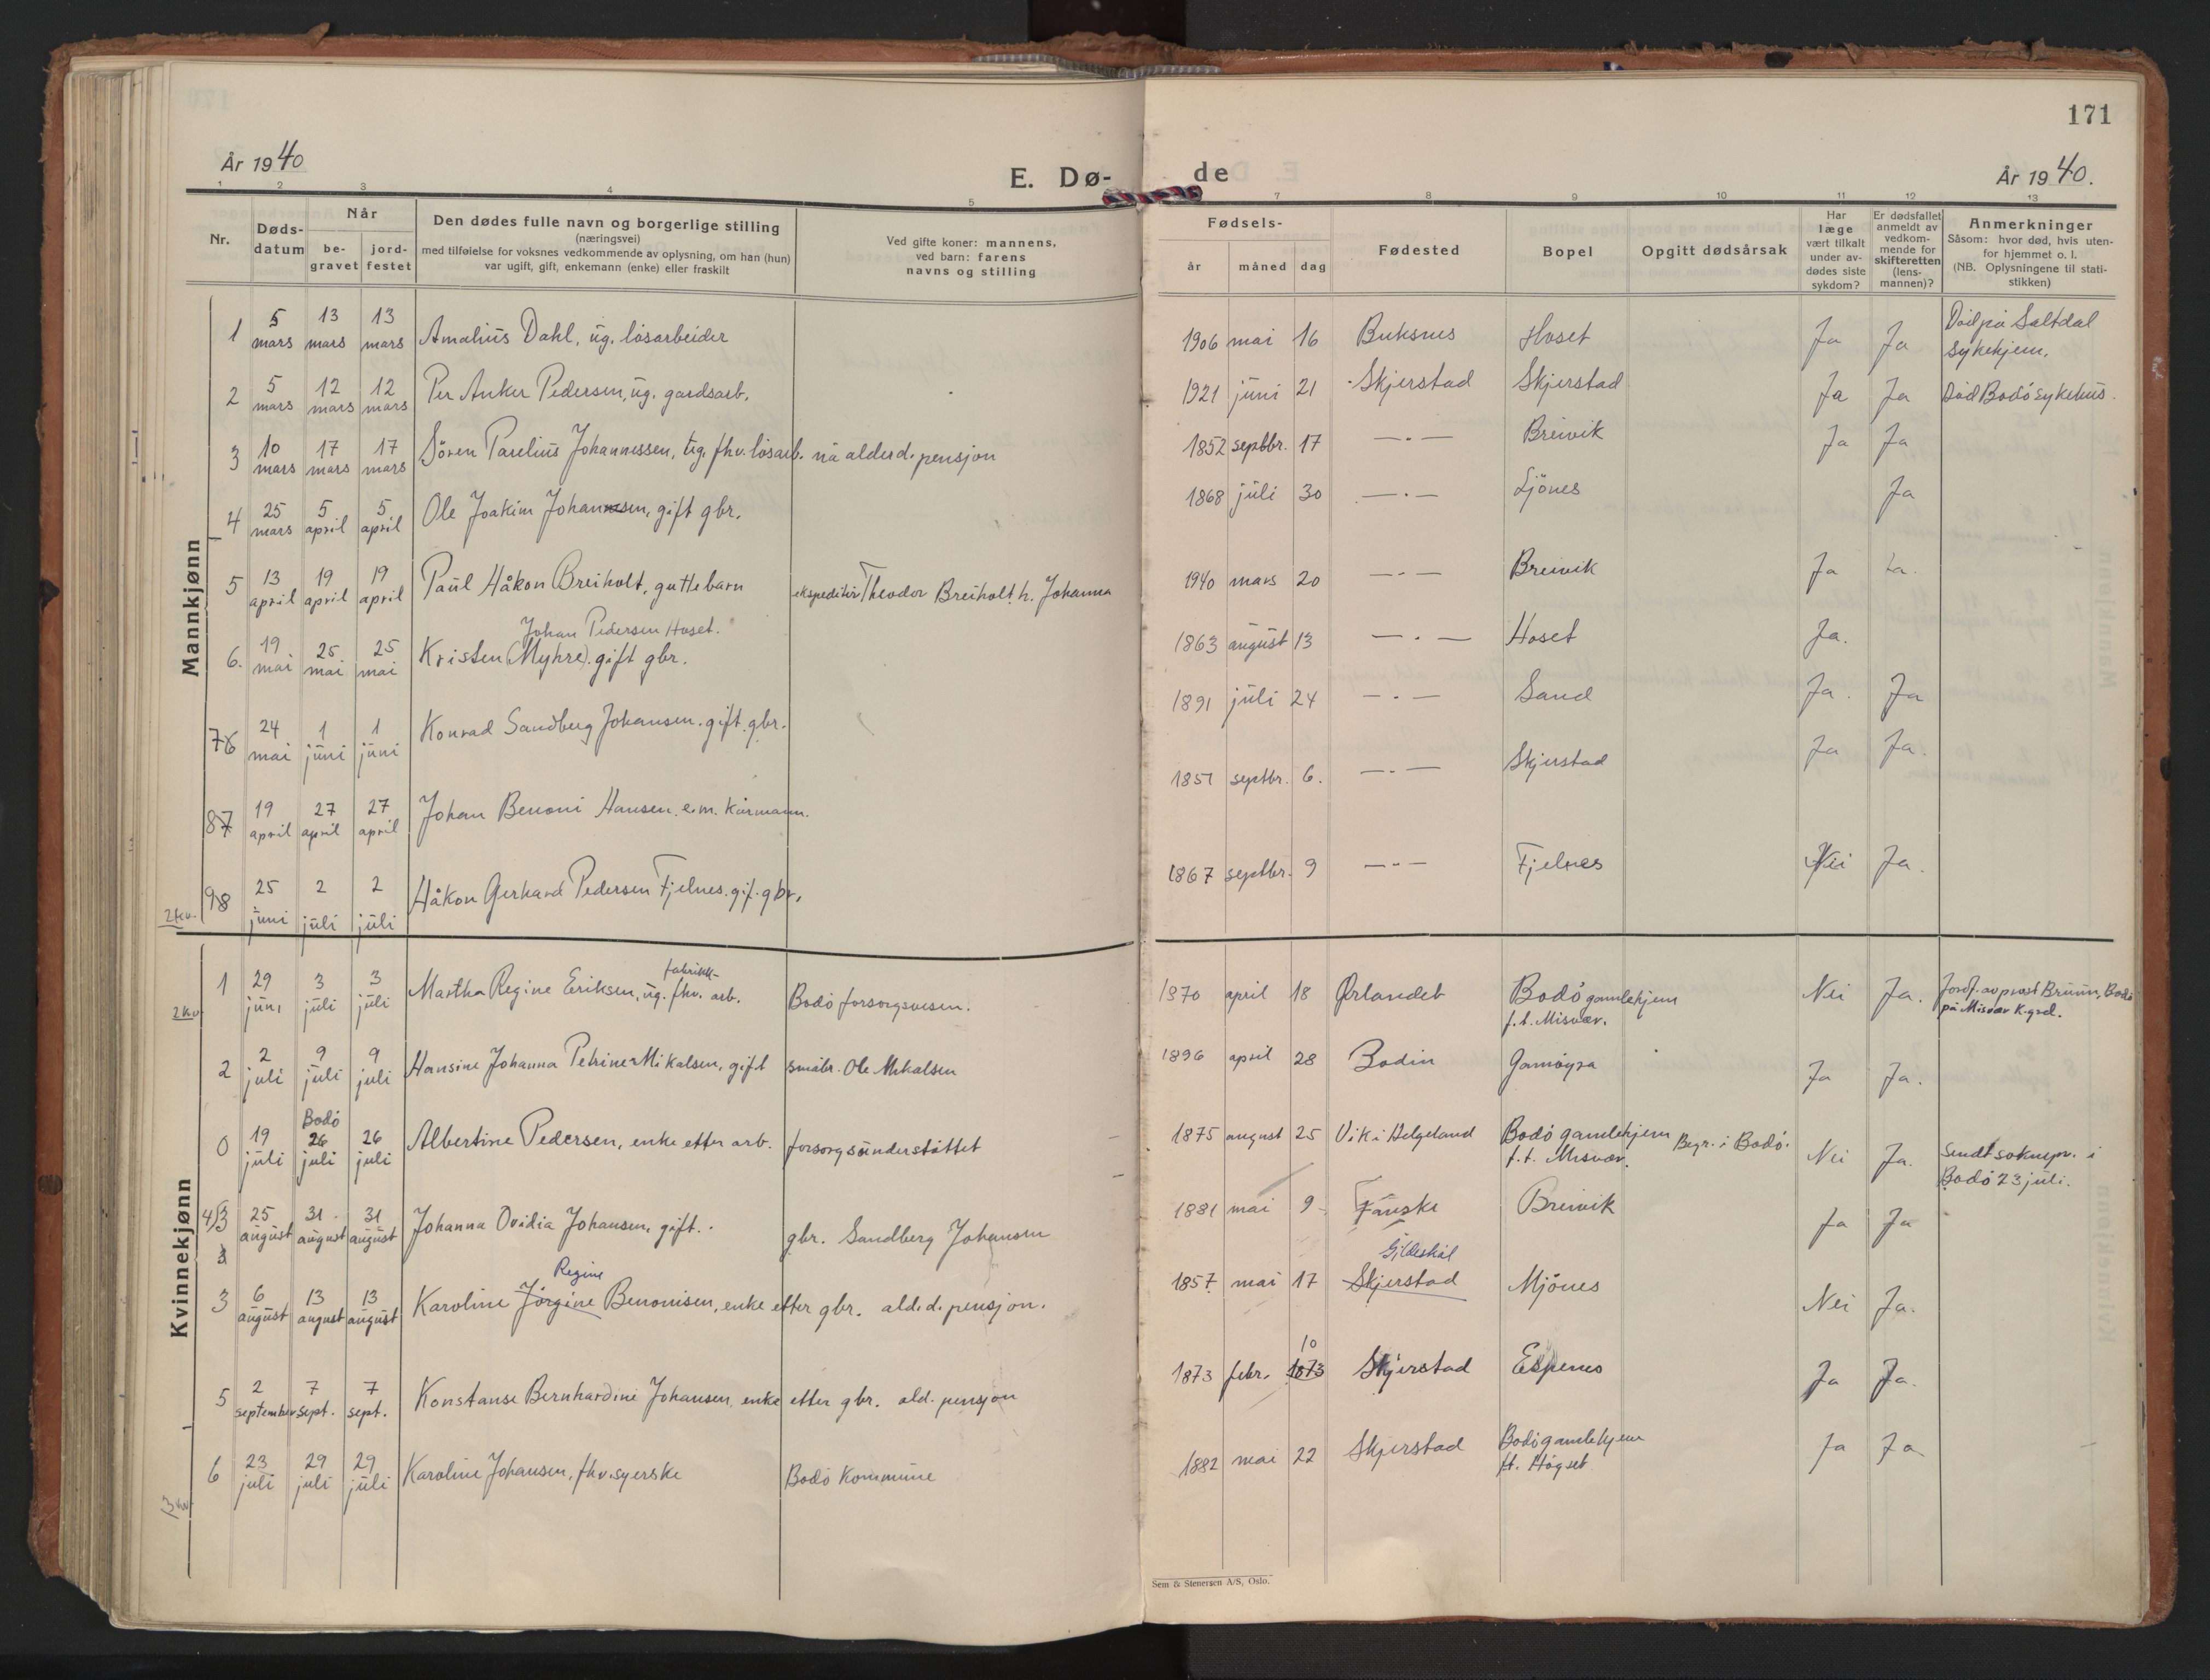 171
År 1940
E. Dø-
de
År 1940.
1 2 3 4 5 7 8 9 10 11 12 13
Nr.
Døds-
datum
Når
be-
gravet
jord-
festet
Den dødes fulle navn og borgerlige stilling
(næringsvei)
med tilføielse for voksnes vedkommende av oplysning, om han (hun)
var ugift, gift, enkemann (enke) eller fraskilt
Ved gifte koner: mannens,
ved barn: farens
navns og stilling
Fødsels-
år måned dag
Fødested
Bopel
Opgitt dødsårsak
Har
læge
vært tilkalt
under av-
dødes siste
sykdom?
Er dødsfallet
anmeldt av
vedkom-
mende for
skifteretten
(lens-
mannen)?
Anmerkninger
Såsom: hvor død, hvis uten-
for hjemmet o. l.
(NB. Oplysningene til stati-
stikken)
Mannkjønn
1 5 mars 13 mars 13 mars Amalius Dahl, ug. løsarbeider 1906 mai 16 Buksnes Hoset Ja Ja Død på Saltdal
sykehjem.
2 5 mars 12 mars 12 mars Per Anker Pedersen, ug. gardsarb. 1921 juni 21 Skjerstad Skjerstad Ja Ja Død Bodö sykehus.
3 10 mars 17 mars 17 mars Sören Parelius Johannessen, ug. fhv. løsarb. nå alderd. pensjon 1852 septbbr. 17 —·— Breivik Ja Ja
4 25 mars 5 april 5 april Ole Joakim Johansen, gift gbr. 1868 juli 30 —·— Ljönes Ja
5 13 april 19 april 19 april Paul Håkon Breiholt, guttebarn ekspeditör Theodor Breiholt. h. Johanna 1940 mars 20 —·— Breivik Ja Ja.
Johan Pedersen Hoset.
6. 19 mai 25 mai 25 mai Kristen (Myhre). gift gbr. 1863 august 13 —·— Hoset Ja.
76 24 mai 1 juni 1 juni Konrad Sandberg Johansen. gift. gbr. 1891 juli 24 —·— Sand Ja. Ja
87 19 april 27 april 27 april Johan Benoni Hansen. e.m. kårmann. 1851 septbr. 6. —·— Skjerstad Ja Ja.
98 25 juni 2 juli 2 juli Håkon Gerhard Pedersen Fjelnes. gif. gbr. 1867 septbr. 9 —·— Fjelnes Nei Ja.
2 kv.
Kvinnekjønn
fabrikk-
1 29 juni 3 juli 3 juli Martha Regine Eriksen, ug. fhv. arb. Bodö forsorgsvesen. 1870 april 18 Ørlandet Bodö gamlehjem
f.t. Misvær. Nei Ja. Jordf. av prost Bruun, Bodö
på Misvær K.grd.
2 kv
2 2 juli 9 juli 9 juli Hansine Johanna Petrine Mikalsen, gift småbr. Ole Mikalsen 1896 april 28 Bodin Gamöyra Ja Ja.
Bodö
0 19 juli 26 juli 26 juli Albertine Pedersen, enke etter arb. forsorgsunderstöttet 1875 august 25 Vik i Helgeland Bodö gamlehjem
f.t. Misvær. Begr. i Bodö. Nei Ja. Sendt soknepr. i
Bodö 23 juli.
4/3 25 august 31 august 31 august Johanna Ovidia Johansen, gift. gbr. Sandberg Johansen 1881 mai 9 Fauske Breivik Ja Ja
Regine
Gildeskål
3 6 august 13 august 13 august Karoline Jörgine Benonisen, enke etter gbr. ald. d. pensjon. 1857 mai 17 Skjerstad Mjönes Nei Ja.
10
5 2 september 7 sept. 7 sept. Konstanse Bernhardine Johansen, enke etter gbr. ald. pensjon 1873 febr. 1873 Skjerstad Espenes Ja Ja.
6 23 juli 29 juli 29 juli Karoline Johansen, fhv. syerske Bodö Kommune 1882 mai 22 Skjerstad Bodö gamlehjem
ft. Högset Ja Ja
3 kv.
Sem & Stenersen A/S, Oslo.